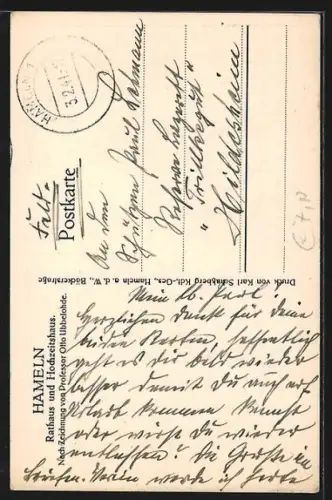 HAMELN
3.2.41
Feldp.
Postkarte
An den
Schützen Paul Lehmann
Reserve Lazarett
"Trillkegut"
Hildesheim
Druck von Karl Schaaberg Kdt.-Ges., Hameln a. d. W., Bäckerstraße
HAMELN
Rathaus und Hochzeitshaus.
Nach Zeichnung von Professor Otto Ubbelohde.
Mein lb. Paul!
Herzlichen Dank für deine
beiden Karten, hoffentlich
geht es dir bald wieder
besser damit du auch auf
Urlaub kommen kannst
oder wirst du wieder
entlassen? Die Grüße im
werde ich